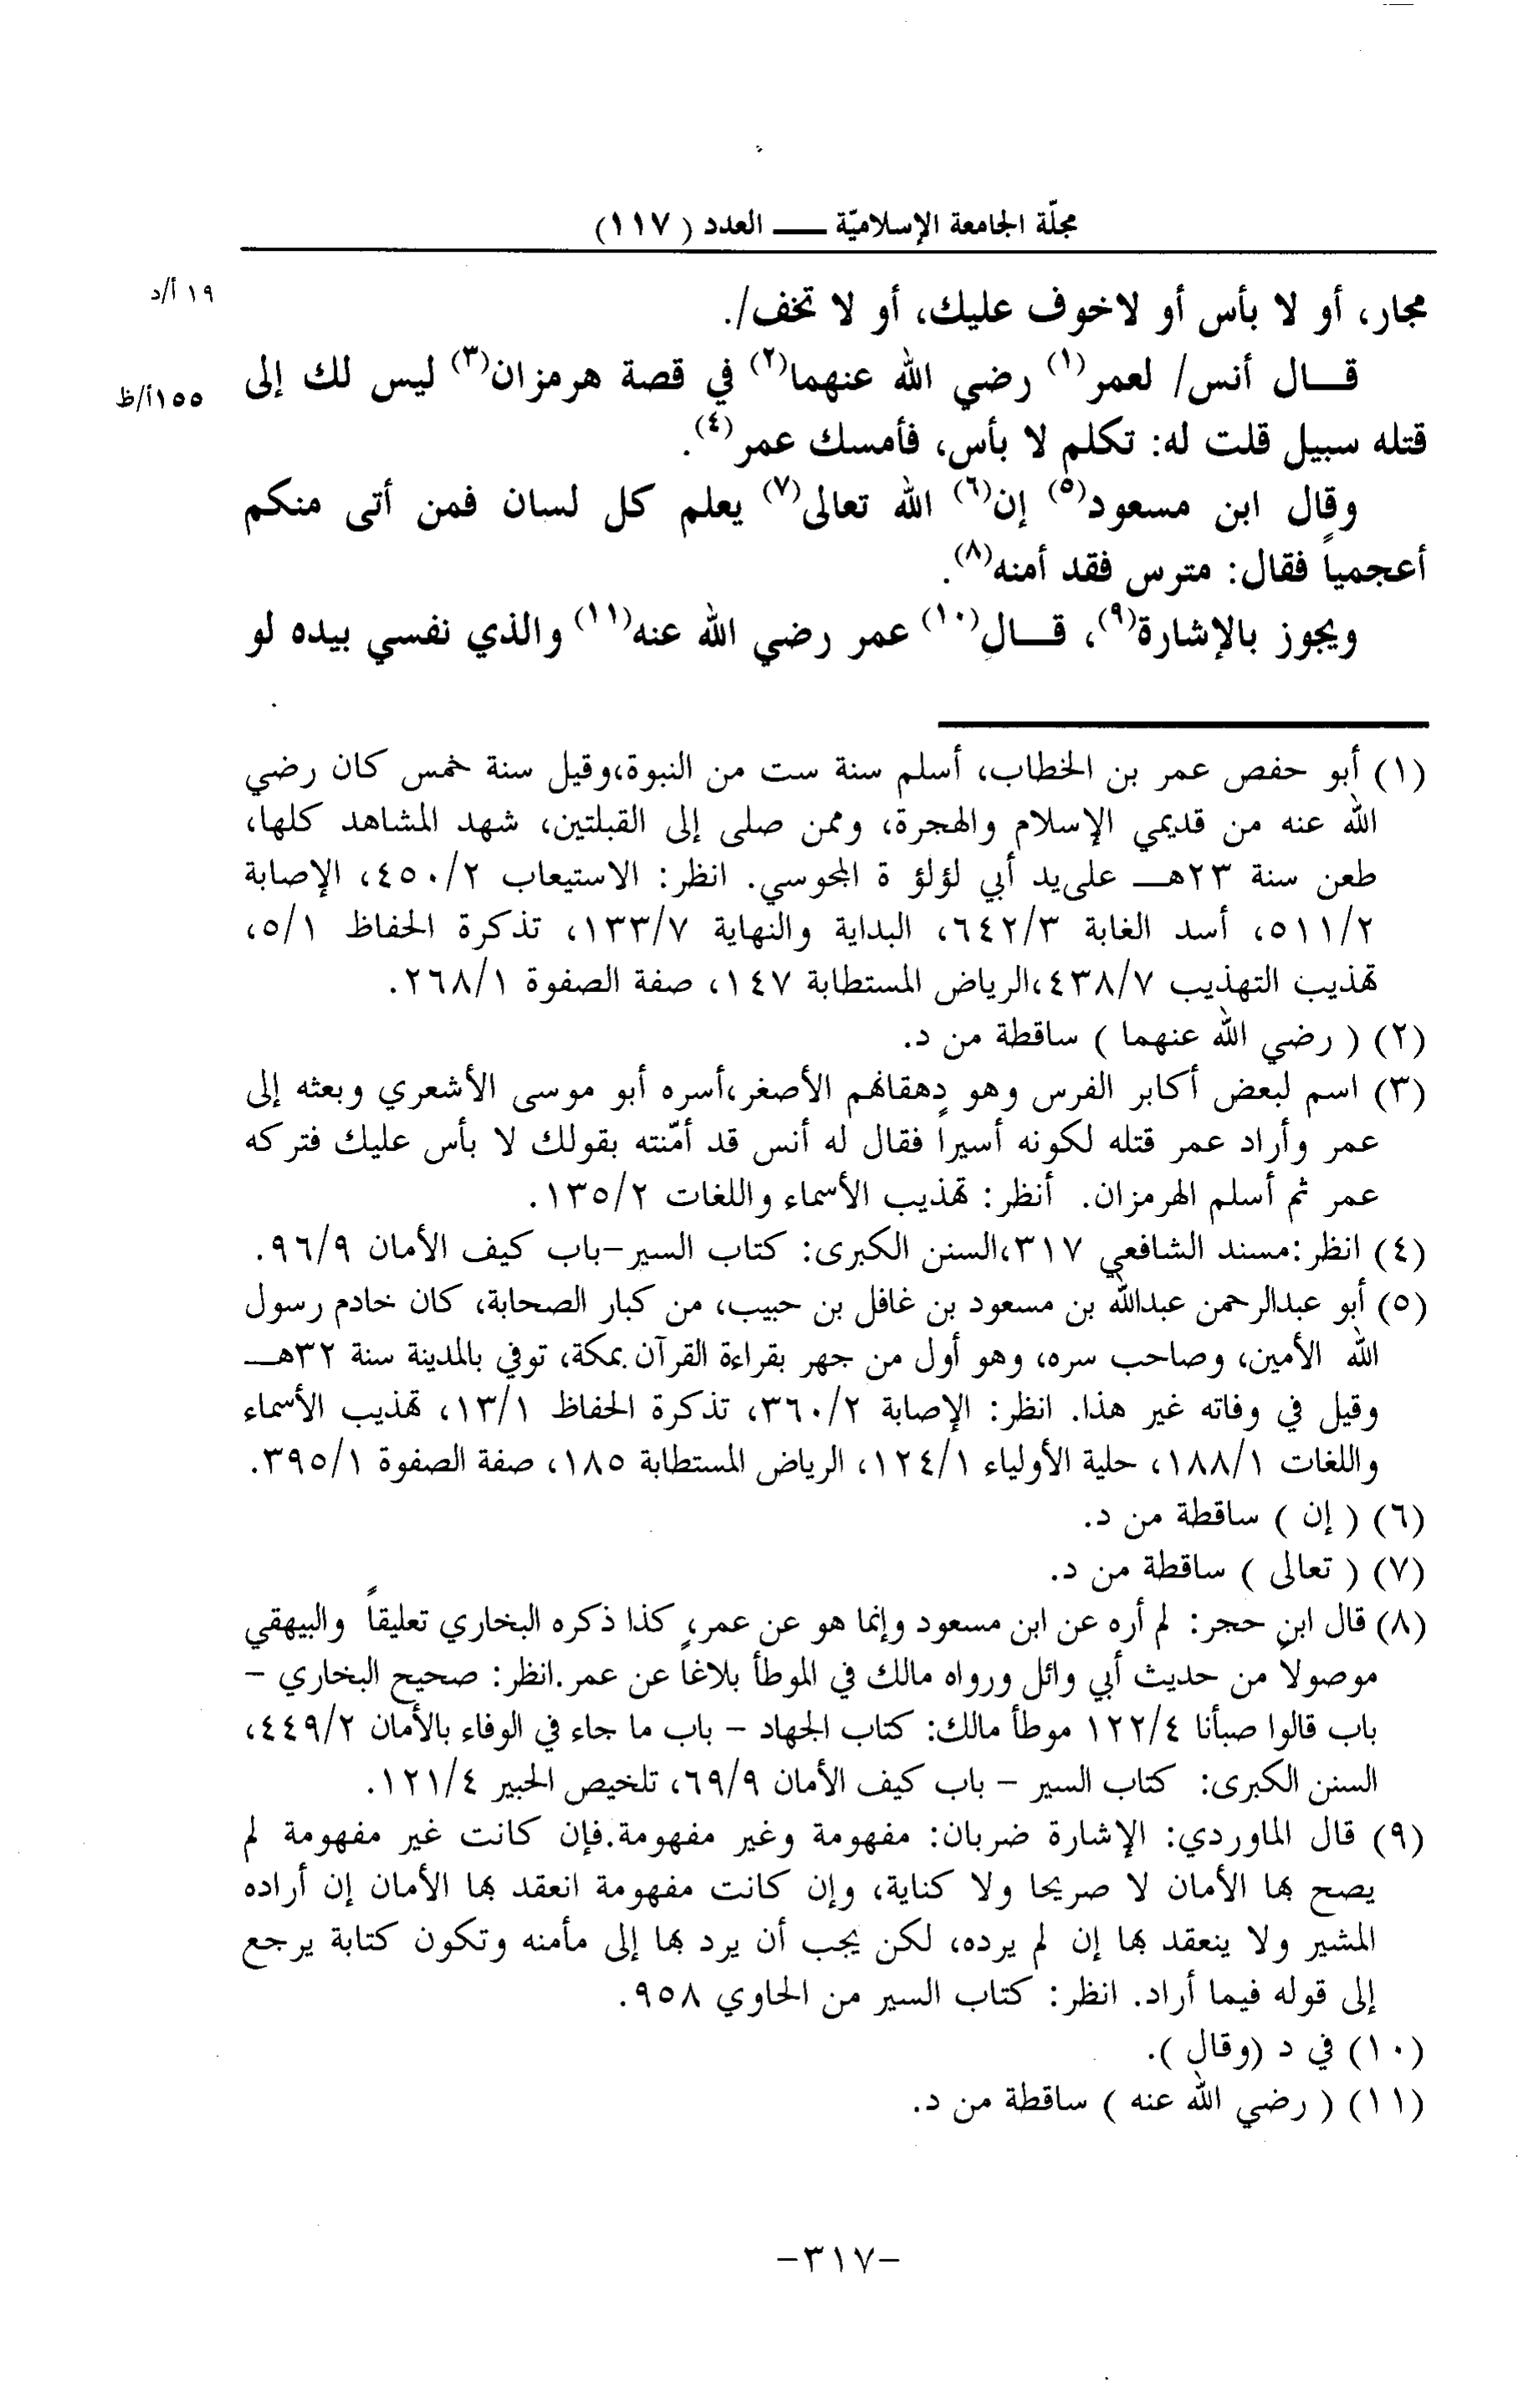 مجلّة الجامعة الإسلاميّة ـــ العدد (١١٧)
مجار، أو لا بأس أو لاخوف عليك، أو لا تخف/.
١٩أ/د
قـــال أنس/ لعمر(١) رضي الله عنهما(٢) في قصة هرمزان(٣) ليس لك إلى
١٥٥أ/ظ
قتله سبيل قلت له: تكلم لا بأس، فأمسك عمر(٤).
وقال ابن مسعود(٥) إن(٦) الله تعالى(٧) يعلم كل لسان فمن أتى منكم
أعجمياً فقال: مترس فقد أمنه(٨).
ويجوز بالإشارة(٩)، قـــال(١٠) عمر رضي الله عنه(١١) والذي نفسي بيده لو
(١) أبو حفص عمر بن الخطاب، أسلم سنة ست من النبوة،وقيل سنة خمس كان رضي
الله عنه من قديمي الإسلام والهجرة، وممن صلى إلى القبلتين، شهد المشاهد كلها،
طعن سنة ٢٣هـــ على‌يد أبي لؤلؤ ة المجوسي. انظر: الاستيعاب ٤٥٠/٢، الإصابة
٥١١/٢، أسد الغابة ٦٤٢/٣، البداية والنهاية ١٣٣/٧، تذكرة الحفاظ ٥/١،
تهذيب التهذيب ٤٣٨/٧،الرياض المستطابة ١٤٧، صفة الصفوة ٢٦٨/١.
(٢) ( رضي الله عنهما ) ساقطة من د.
(٣) اسم لبعض أكابر الفرس وهو دهقانهم الأصغر،أسره أبو موسى الأشعري وبعثه إلى
عمر وأراد عمر قتله لكونه أسيراً فقال له أنس قد أمّنته بقولك لا بأس عليك فتركه
عمر ثم أسلم الهرمزان. أنظر: تهذيب الأسماء واللغات ١٣٥/٢.
(٤) انظر:مسند الشافعي ٣١٧،السنن الكبرى: كتاب السير-باب كيف الأمان ٩٦/٩.
(٥) أبو عبدالرحمن عبدالله بن مسعود بن غافل بن حبيب، من كبار الصحابة، كان خادم رسول
الله الأمين، وصاحب سره، وهو أول من جهر بقراءة القرآن بمكة، توفي بالمدينة سنة ٣٢هـــ
وقيل في وفاته غير هذا. انظر: الإصابة ٣٦٠/٢، تذكرة الحفاظ ١٣/١، تهذيب الأسماء
واللغات ١٨٨/١، حلية الأولياء ١٢٤/١، الرياض المستطابة ١٨٥، صفة الصفوة ٣٩٥/١.
(٦) ( إن ) ساقطة من د.
(٧) ( تعالى ) ساقطة من د.
(٨) قال ابن حجر: لم أره عن ابن مسعود وإنما هو عن عمر، كذا ذكره البخاري تعليقاً والبيهقي
موصولاً من حديث أبي وائل ورواه مالك في الموطأ بلاغاً عن عمر.انظر: صحيح البخاري -
باب قالوا صبأنا ١٢٢/٤ موطأ مالك: كتاب الجهاد - باب ما جاء في الوفاء بالأمان ٤٤٩/٢،
السنن الكبرى: كتاب السير - باب كيف الأمان ٦٩/٩، تلخيص الحبير ١٢١/٤.
(٩) قال الماوردي: الإشارة ضربان: مفهومة وغير مفهومة.فإن كانت غير مفهومة لم
يصح بها الأمان لا صريحا ولا كناية، وإن كانت مفهومة انعقد بها الأمان إن أراده
المشير ولا ينعقد بها إن لم يرده، لكن يجب أن يرد بها إلى مأمنه وتكون كتابة يرجع
إلى قوله فيما أراد. انظر: كتاب السير من الحاوي ٩٥٨.
(١٠) في د (وقال ).
(١١) ( رضي الله عنه ) ساقطة من د.
-٣١٧-